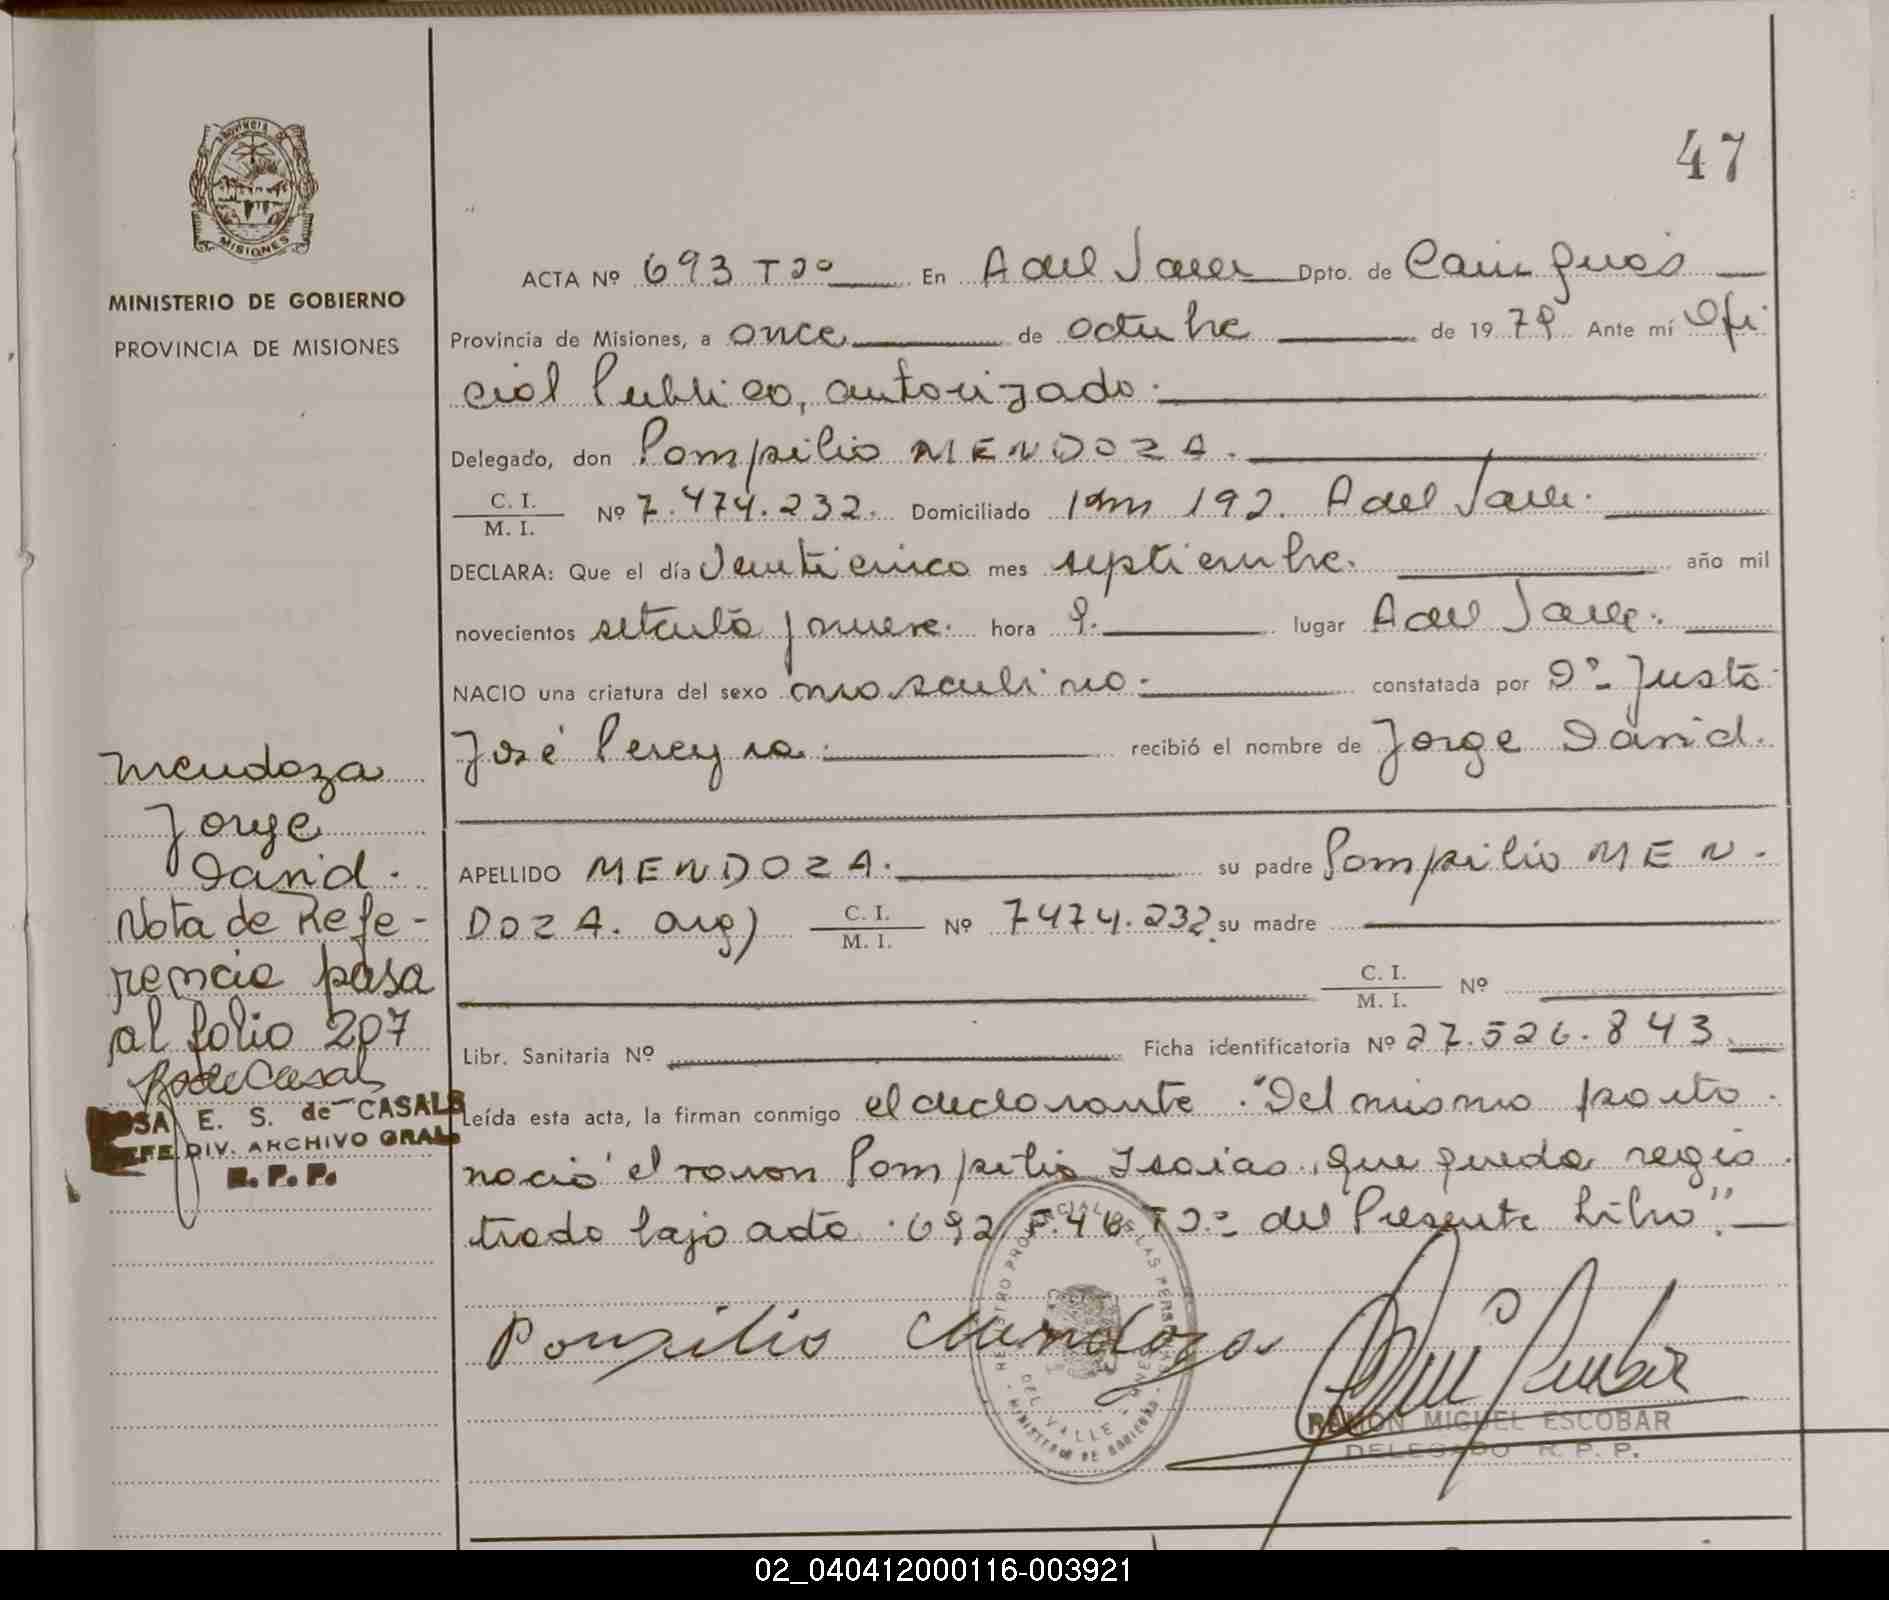 PROVINCIA DE
MISIONES
MINISTERIO DE GOBIERNO
PROVINCIA DE MISIONES
47
ACTA Nº 693 Tº 2º En A del Valle Dpto. de Cainguás
Provincia de Misiones, a once de octubre de 1979 Ante mí Ofi
cial Publico, autorizado.
Delegado, don Pompilio MENDOZA.
C. I.
M. I. Nº 7.474.232. Domiciliado Km 192. A del Valle.
DECLARA: Que el día Veinticinco mes septiembre. año mil
novecientos setenta y nueve. hora 9. lugar A del Valle.
NACIO una criatura del sexo masculino. constatada por Dº Justo
José Pereyra. recibió el nombre de Jorge David.
APELLIDO MENDOZA. su padre Pompilio MEN-
DOZA. arg) C. I.
M. I. Nº 7474.232. su madre
C. I.
M. I. Nº
Libr. Sanitaria Nº Ficha identificatoria Nº 27.526.843
Leída esta acta, la firman conmigo el declarante. "Del mismo parto
nació el varon Pompilio Isaias, que queda regis
trado bajo acta 692 F. 46 T2º del Presente Libro".
Pompilio Mendoza
REGISTRO PROVINCIAL DE LAS PERSONAS
DEL VALLE - MNES
MINISTERIO DE GOBIERNO
RAMON MIGUEL ESCOBAR
DELEGADO R. P. P.
Mendoza
Jorge
David.
Nota de Refe-
rencia pasa
al folio 207
RosadeCasals
ROSA E. S. de CASALS
JEFE DIV. ARCHIVO GRAL.
R. P. P.
02_040412000116-003921